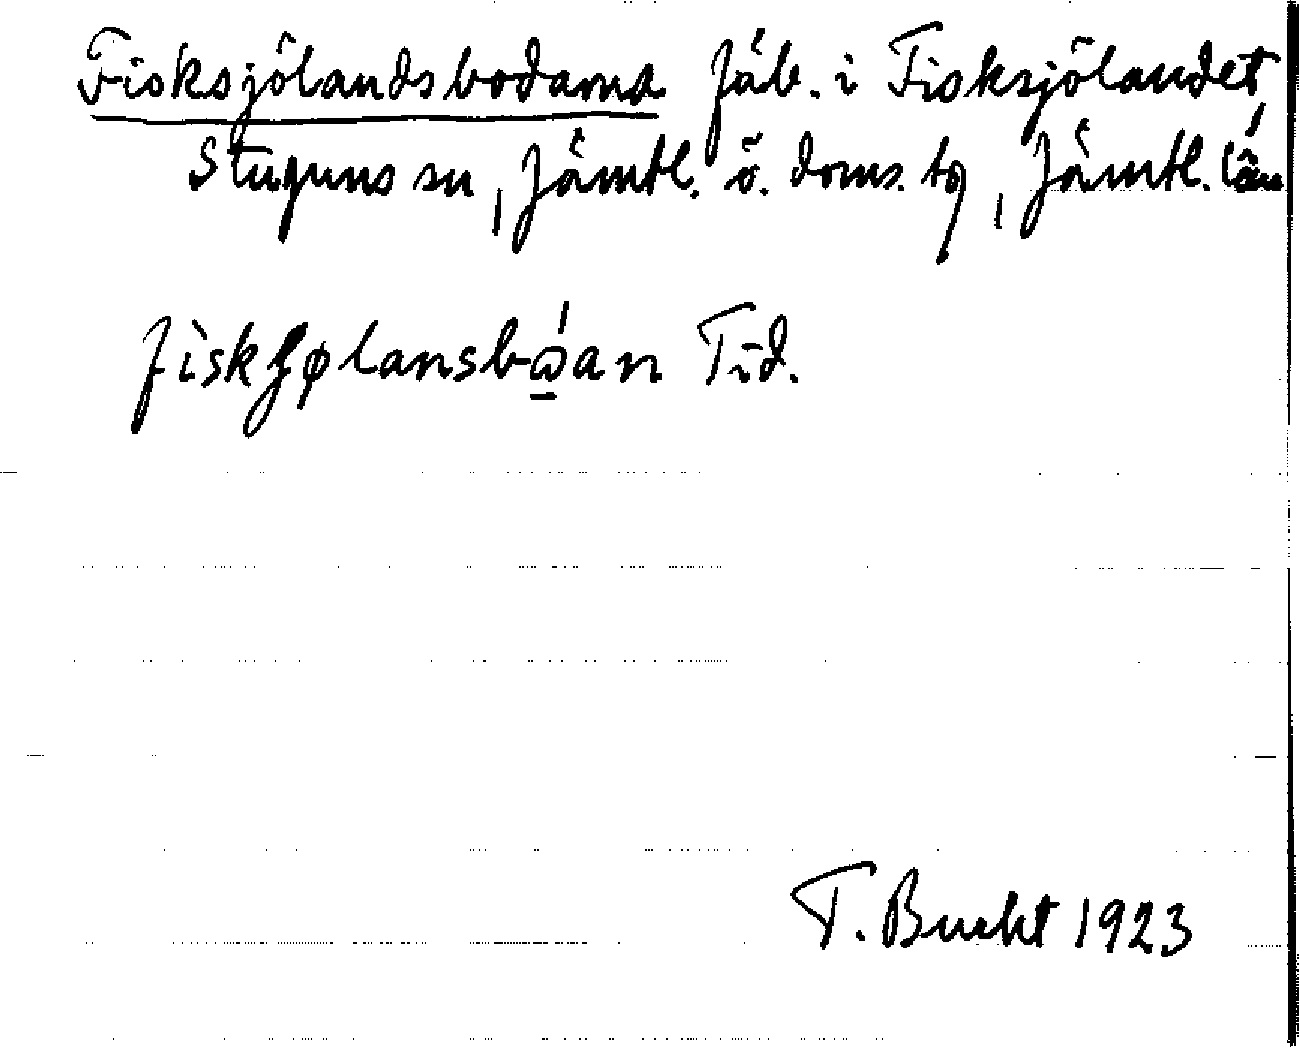 Fisksjölandsbodarna fäb. i Fisksjölandet,
Stuguns sn, Jämtl. ö. doms. tg, Jämtl. län
T. Bucht 1923